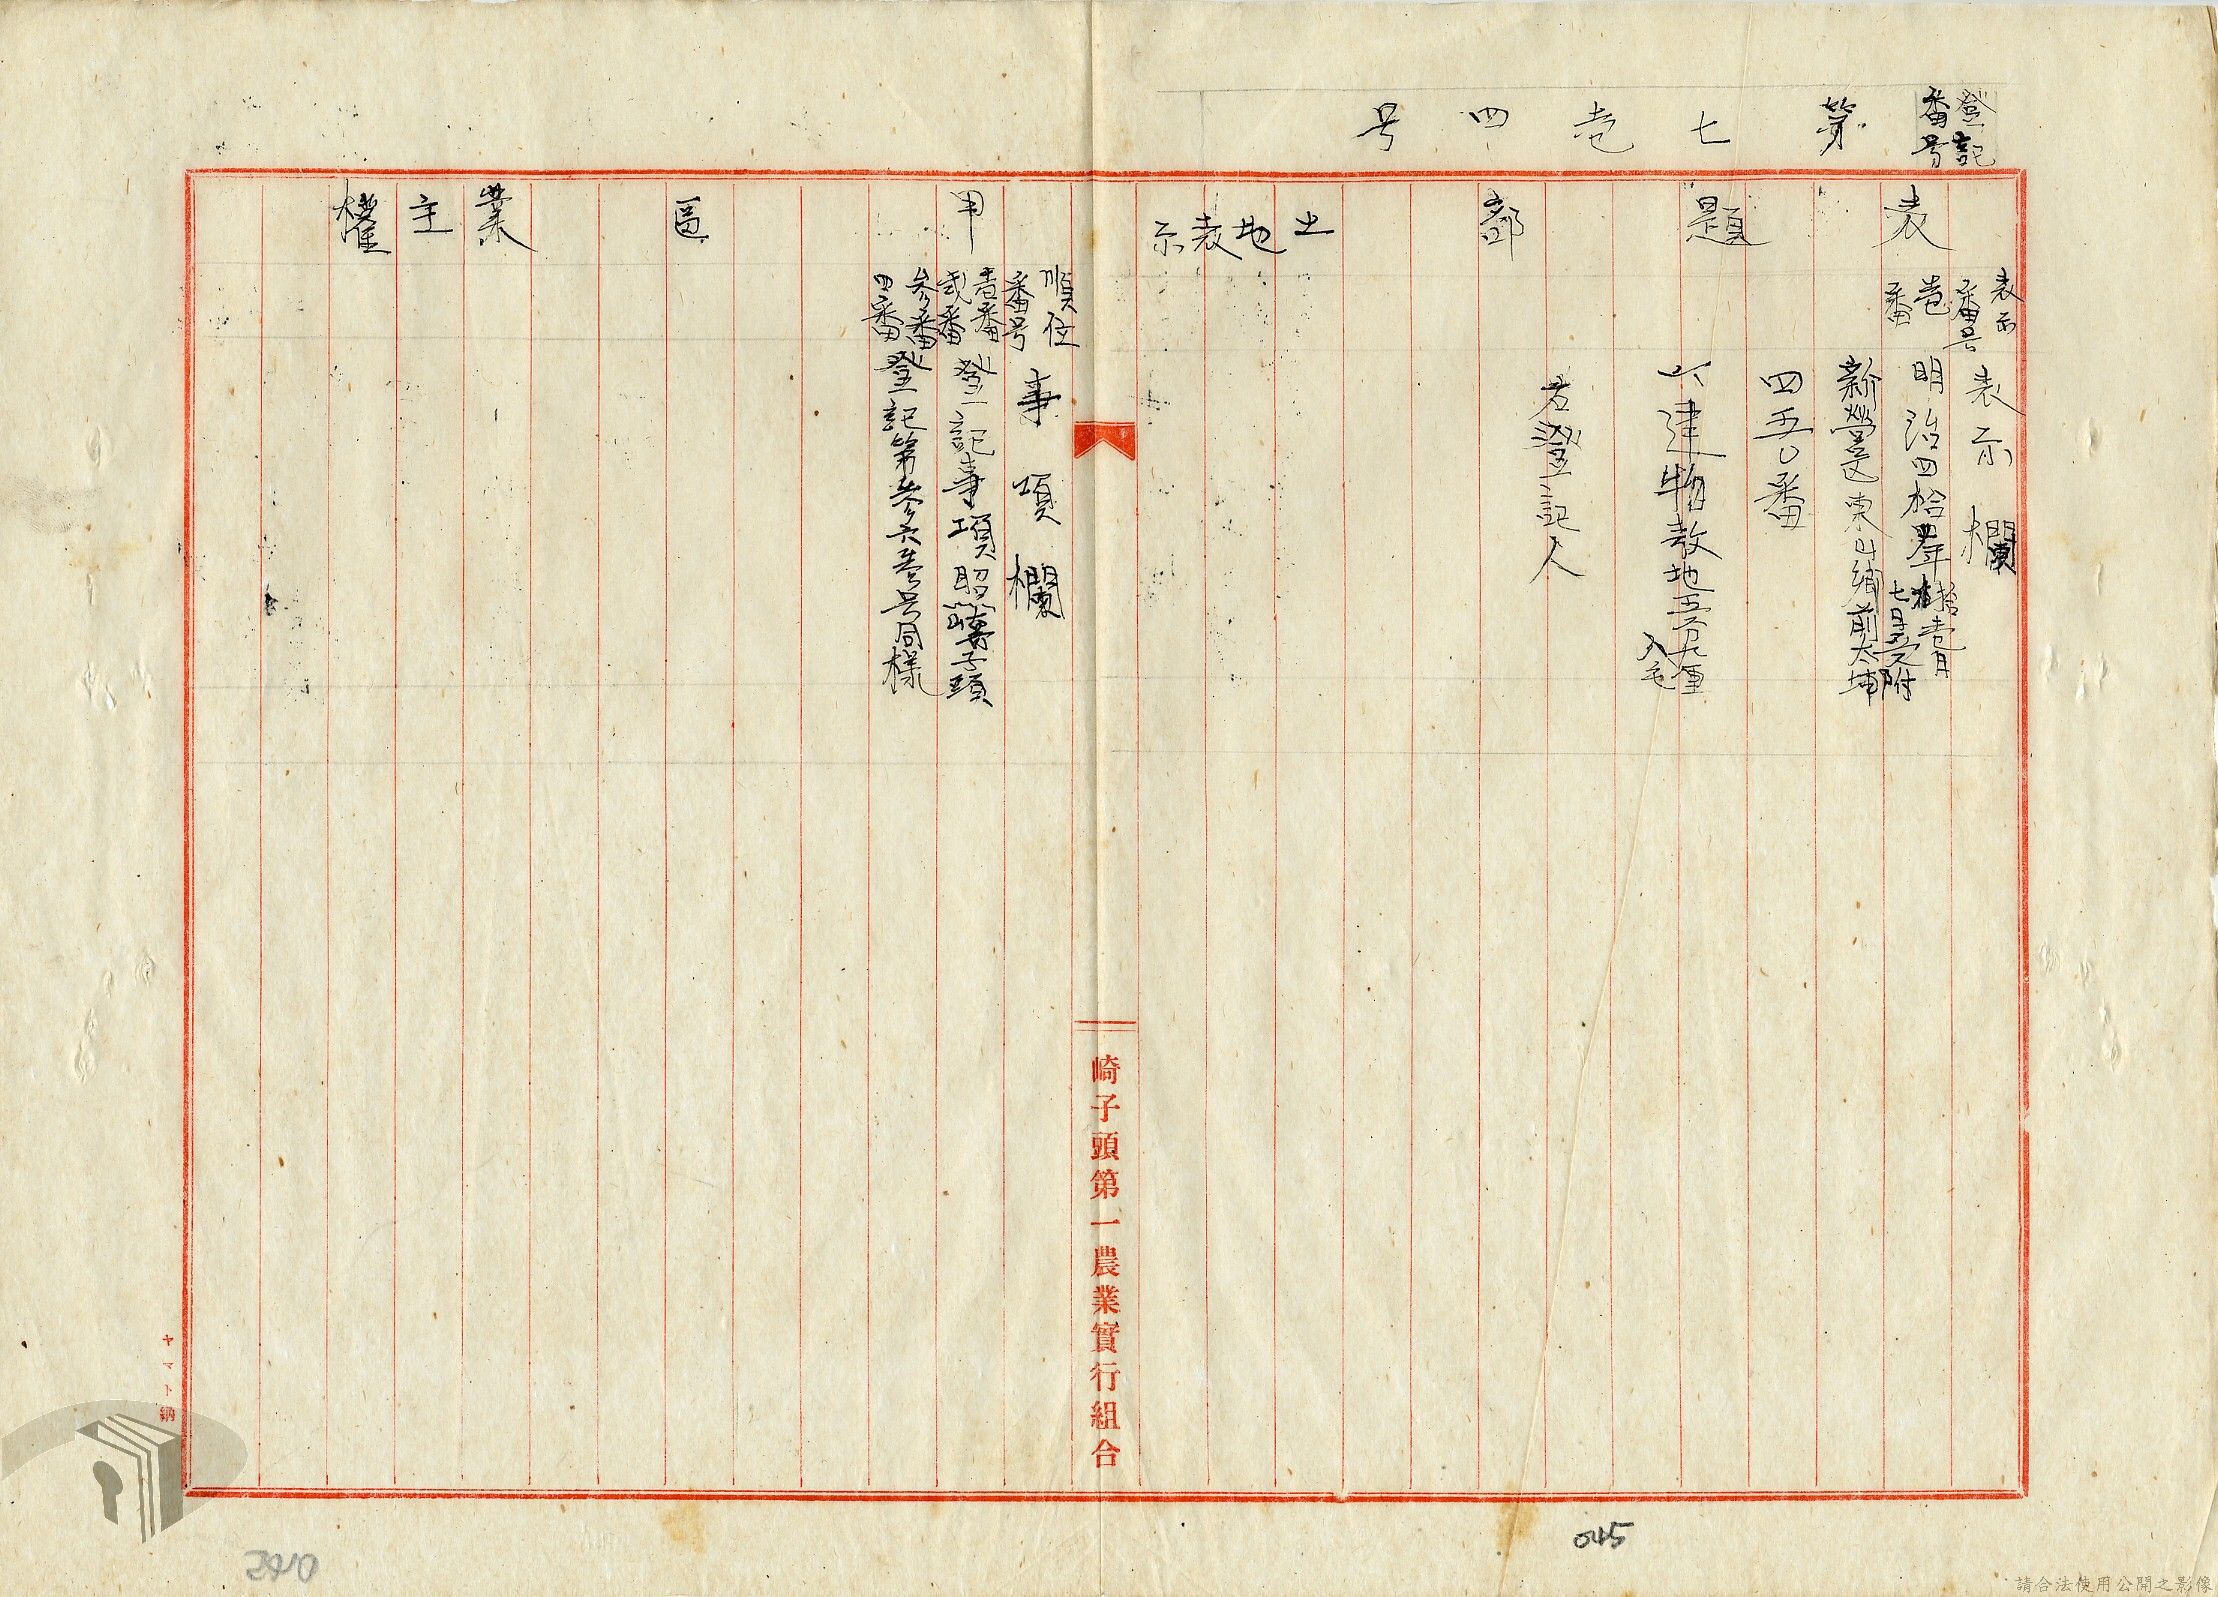 登記
番号
第七壱四号
表題部
土地表示
表示
番号
表示欄
壱
番
明治四拾四年拾壱月
七日受附
新營區東山鄉前大埔
四五〇番
一、建物敷地五分九厘
八毛
右登記人
甲區
業主權
順位
番号
事項欄
壱番
弐番
登記事項照崎子頭
參番
四番
登記第參六壱号同様
崎子頭第一農業實行組合
ヤマト納
045
請合法使用公開之影像